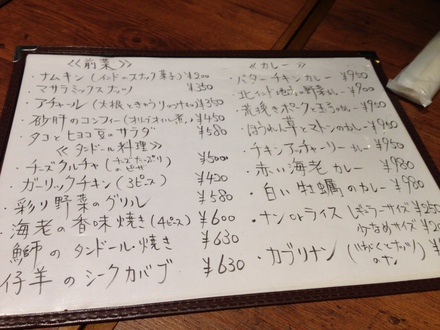 <<前菜>>
・ナムキン(インドのスナック菓子)¥200
マサラミックスナッツ ¥350
・アチャール(大根ときゅうり ¥350
・砂肝のコンフィ(オリーブオイル煮)¥450
タコとヒヨコ豆のサラダ ¥580
<<タンドール料理>>
・チーズクルチャ(チーズたっぷり ¥500
・ガーリックチキン(3ピース) ¥420
・彩り野菜のグリル ¥580
・海老の香味焼き(4ピース) ¥600
・鰤のタンドール・焼き ¥630
・仔羊のシークカバブ ¥630
<<カレー>>
・バターチキンカレー ¥950
・北インド地方の野菜カレー ¥900
・荒挽きポークと ¥950
・ほうれん草とマトンのカレー ¥950
・チキンアッチャーリーカレー ¥950
・赤い海老カレー ¥980
・白い牡蠣のカレー ¥980
・ナンorライス(レギュラーサイズ ¥250
少なめサイズ ¥20
・カブリナン(はちみつとナッツ
のナン ¥